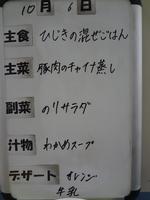 10月6日
主食 ひじきの混ぜごはん
主菜 豚肉のチャイナ蒸し
副菜 のりサラダ
汁物 わかめスープ
デザート オレンジ
牛乳